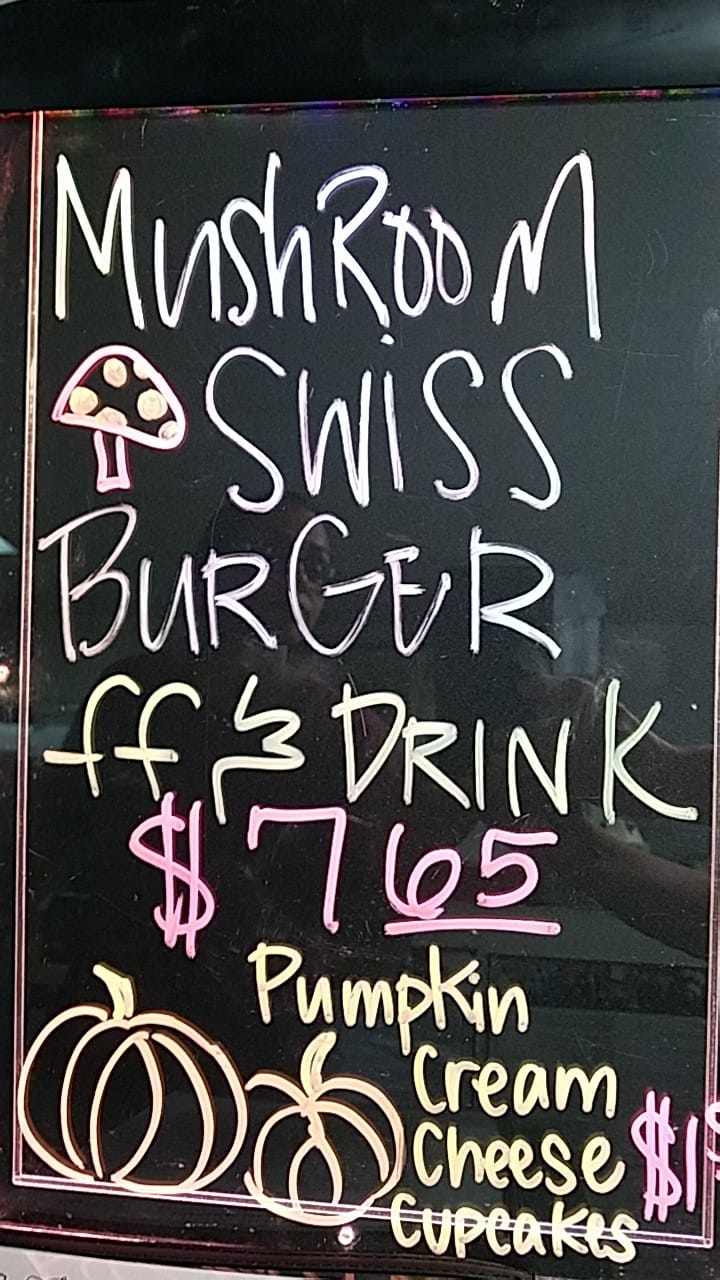 MushRooM
SWiSS
BURGER
ff & DRINK
$7 65
Pumpkin
Cream
Cheese
Cupcakes